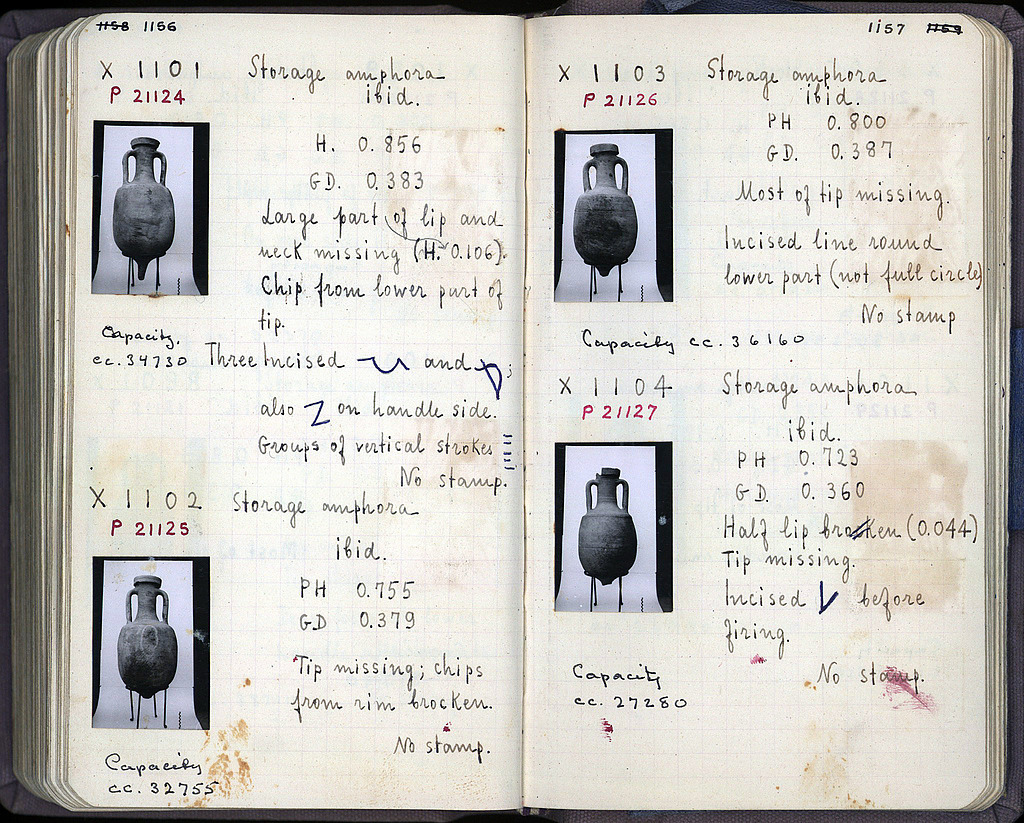 1158 1156
X 1101 Storage amphora
P 21124 ibid.
H. 0.856
GD. 0.383
Large part of lip and
neck missing (H. 0.106).
Chip from lower part of
tip.
Capacity.
cc. 34730
Three Incised and ;
also Z on handle side.
Groups of vertical strokes
No stamp.
X 1102 Storage amphora
P 21125
ibid.
PH 0.755
GD 0.379
Tip missing; chips
from rim brocken.
No stamp.
Capacity
cc. 32755
1157 1159
X 1103 Storage amphora
P 21126 ibid.
PH 0.800
GD. 0.387
Most of tip missing.
Incised line round
lower part (not full circle)
No stamp
Capacity cc. 36160
X 1104 Storage amphora
P 21127
ibid.
PH 0.723
GD. 0.360
Half lip brocken (0.044)
Tip missing.
Incised V before
firing.
No stamp.
Capacity
cc. 27280